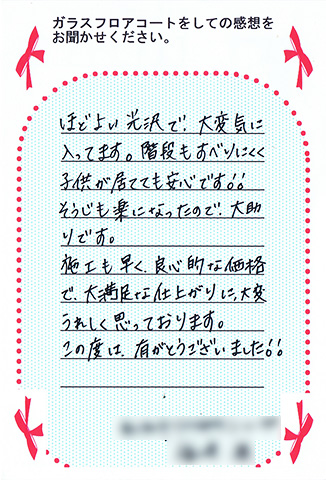 ガラスフロアコートをしての感想を
お聞かせください。
ほどよい光沢で、大変気に
入ってます。階段もすべりにくく
子供が居てても安心です!!
そうじも楽になったので、大助
りです。
施工も早く、良心的な価格
で、大満足な仕上がりに、大変
うれしく思っております。
この度は、有がとうございました!!